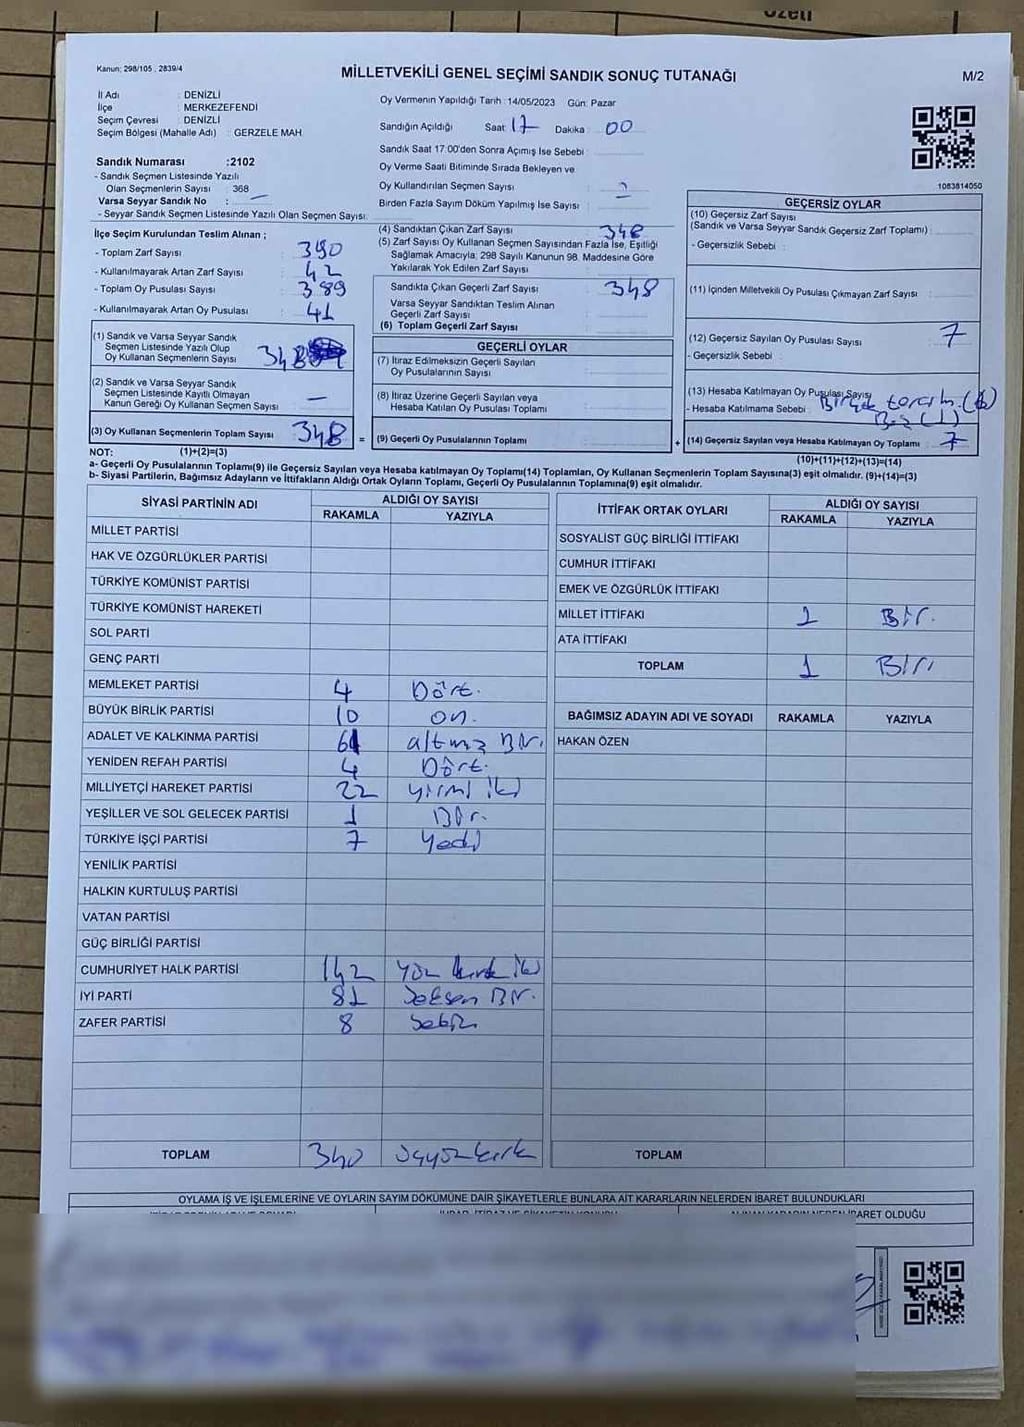 özeti
Kanun: 298/105 , 2839/4
MİLLETVEKİLİ GENEL SEÇİMİ SANDIK SONUÇ TUTANAĞI
M/2
İl Adı : DENİZLİ
İlçe : MERKEZEFENDİ
Seçim Çevresi : DENİZLİ
Seçim Bölgesi (Mahalle Adı) : GERZELE MAH.
Oy Vermenin Yapıldığı Tarih : 14/05/2023 Gün: Pazar
Sandığın Açıldığı Saat 17 Dakika : 00
Sandık Saat 17:00'den Sonra Açımış İse Sebebi :
Oy Verme Saati Bitiminde Sırada Bekleyen ve
Oy Kullandırılan Seçmen Sayısı :
Birden Fazla Sayım Döküm Yapılmış İse Sayısı :
Sandık Numarası :2102
- Sandık Seçmen Listesinde Yazılı
Olan Seçmenlerin Sayısı : 368
Varsa Seyyar Sandık No : —
- Seyyar Sandık Seçmen Listesinde Yazılı Olan Seçmen Sayısı:
1083814050
İlçe Seçim Kurulundan Teslim Alınan ;
- Toplam Zarf Sayısı : 390
- Kullanılmayarak Artan Zarf Sayısı : 42
- Toplam Oy Pusulası Sayısı : 389
- Kullanılmayarak Artan Oy Pusulası : 41
(1) Sandık ve Varsa Seyyar Sandık
Seçmen Listesinde Yazılı Olup
Oy Kullanan Seçmenlerin Sayısı 348
(2) Sandık ve Varsa Seyyar Sandık
Seçmen Listesinde Kayıtlı Olmayan
Kanun Gereği Oy Kullanan Seçmen Sayısı —
(3) Oy Kullanan Seçmenlerin Toplam Sayısı 348 =
(4) Sandıktan Çıkan Zarf Sayısı : 348
(5) Zarf Sayısı Oy Kullanan Seçmen Sayısından Fazla İse, Eşitliği
Sağlamak Amacıyla; 298 Sayılı Kanunun 98. Maddesine Göre
Yakılarak Yok Edilen Zarf Sayısı :
Sandıkta Çıkan Geçerli Zarf Sayısı : 348
Varsa Seyyar Sandıktan Teslim Alınan
Geçerli Zarf Sayısı :
(6) Toplam Geçerli Zarf Sayısı :
GEÇERLİ OYLAR
(7) İtiraz Edilmeksizin Geçerli Sayılan
Oy Pusulalarının Sayısı :
(8) İtiraz Üzerine Geçerli Sayılan veya
Hesaba Katılan Oy Pusulası Toplamı :
(9) Geçerli Oy Pusulalarının Toplamı : +
GEÇERSİZ OYLAR
(10) Geçersiz Zarf Sayısı
(Sandık ve Varsa Seyyar Sandık Geçersiz Zarf Toplamı) :
- Geçersizlik Sebebi :
(11) İçinden Milletvekili Oy Pusulası Çıkmayan Zarf Sayısı :
(12) Geçersiz Sayılan Oy Pusulası Sayısı : 7
- Geçersizlik Sebebi :
(13) Hesaba Katılmayan Oy Pusulası Sayısı
- Hesaba Katılmama Sebebi : (6)
Boş (1)
(14) Geçersiz Sayılan veya Hesaba Katılmayan Oy Toplamı : 7
NOT: (1)+(2)=(3)
(10)+(11)+(12)+(13)=(14)
a- Geçerli Oy Pusulalarının Toplamı(9) ile Geçersiz Sayılan veya Hesaba katılmayan Oy Toplamı(14) Toplamları, Oy Kullanan Seçmenlerin Toplam Sayısına(3) eşit olmalıdır. (9)+(14)=(3)
b- Siyasi Partilerin, Bağımsız Adayların ve İttifakların Aldığı Ortak Oyların Toplamı, Geçerli Oy Pusulalarının Toplamına(9) eşit olmalıdır.
SİYASİ PARTİNİN ADI
ALDIĞI OY SAYISI
RAKAMLA YAZIYLA
MİLLET PARTİSİ
HAK VE ÖZGÜRLÜKLER PARTİSİ
TÜRKİYE KOMÜNİST PARTİSİ
TÜRKİYE KOMÜNİST HAREKETİ
SOL PARTİ
GENÇ PARTİ
MEMLEKET PARTİSİ 4 Dört.
BÜYÜK BİRLİK PARTİSİ 10 on.
ADALET VE KALKINMA PARTİSİ 61 altmış Bir.
YENİDEN REFAH PARTİSİ 4 Dört.
MİLLİYETÇİ HAREKET PARTİSİ 22 yirmi iki
YEŞİLLER VE SOL GELECEK PARTİSİ 1 Bir.
TÜRKİYE İŞÇİ PARTİSİ 7 Yedi
YENİLİK PARTİSİ
HALKIN KURTULUŞ PARTİSİ
VATAN PARTİSİ
GÜÇ BİRLİĞİ PARTİSİ
CUMHURİYET HALK PARTİSİ 142 Yüz kırk iki
İYİ PARTİ 81 Seksen Bir.
ZAFER PARTİSİ 8 Sekiz
TOPLAM 340 üçyüzkırk
İTTİFAK ORTAK OYLARI
ALDIĞI OY SAYISI
RAKAMLA YAZIYLA
SOSYALİST GÜÇ BİRLİĞİ İTTİFAKI
CUMHUR İTTİFAKI
EMEK VE ÖZGÜRLÜK İTTİFAKI
MİLLET İTTİFAKI 1 Bir.
ATA İTTİFAKI
TOPLAM 1 Bir.
BAĞIMSIZ ADAYIN ADI VE SOYADI RAKAMLA YAZIYLA
HAKAN ÖZEN
TOPLAM
OYLAMA İŞ VE İŞLEMLERİNE VE OYLARIN SAYIM DÖKÜMÜNE DAİR ŞİKAYETLERLE BUNLARA AİT KARARLARIN NELERDEN İBARET BULUNDUKLARI
ALINAN KARARIN NEDEN İBARET OLDUĞU